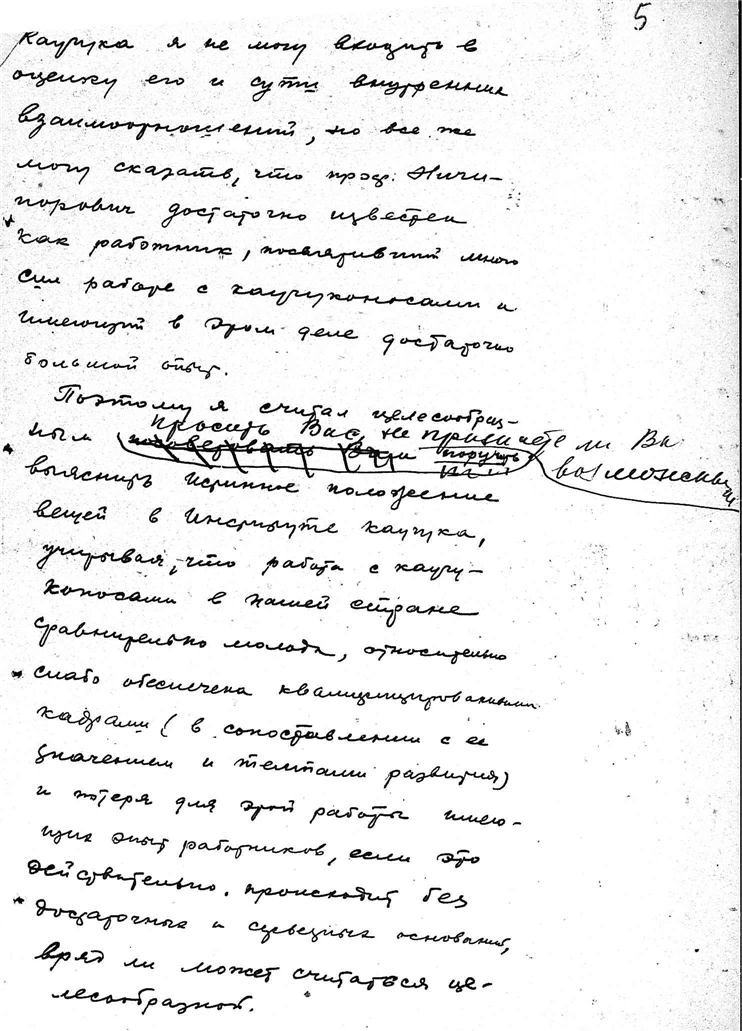 5
Каучука я не могу входить в
оценку его и сути внутренних
взаимоотношений, но все же
могу сказать, что проф. Ничи-
порович достаточно известен
как работник, посвятивший много
сил работе с каучуконосами и
имеющий в этом деле достаточно
большой опыт.
Поэтому я считал целесообраз-
просить Вас, не признаете ли Вы
ным поручить возможным
выяснить истинное положение
вещей в Институте каучука,
учитывая, что работа с каучу-
коносами в нашей стране
сравнительно молода, относительно
слабо обеспечена квалифицированными
кадрами (в сопоставлении с ее
значением и темпами развития)
и потеря для этой работы имею-
щих опыт работников, если это
действительно происходит без
достаточных и серьезных оснований,
вряд ли может считаться це-
лесообразной.